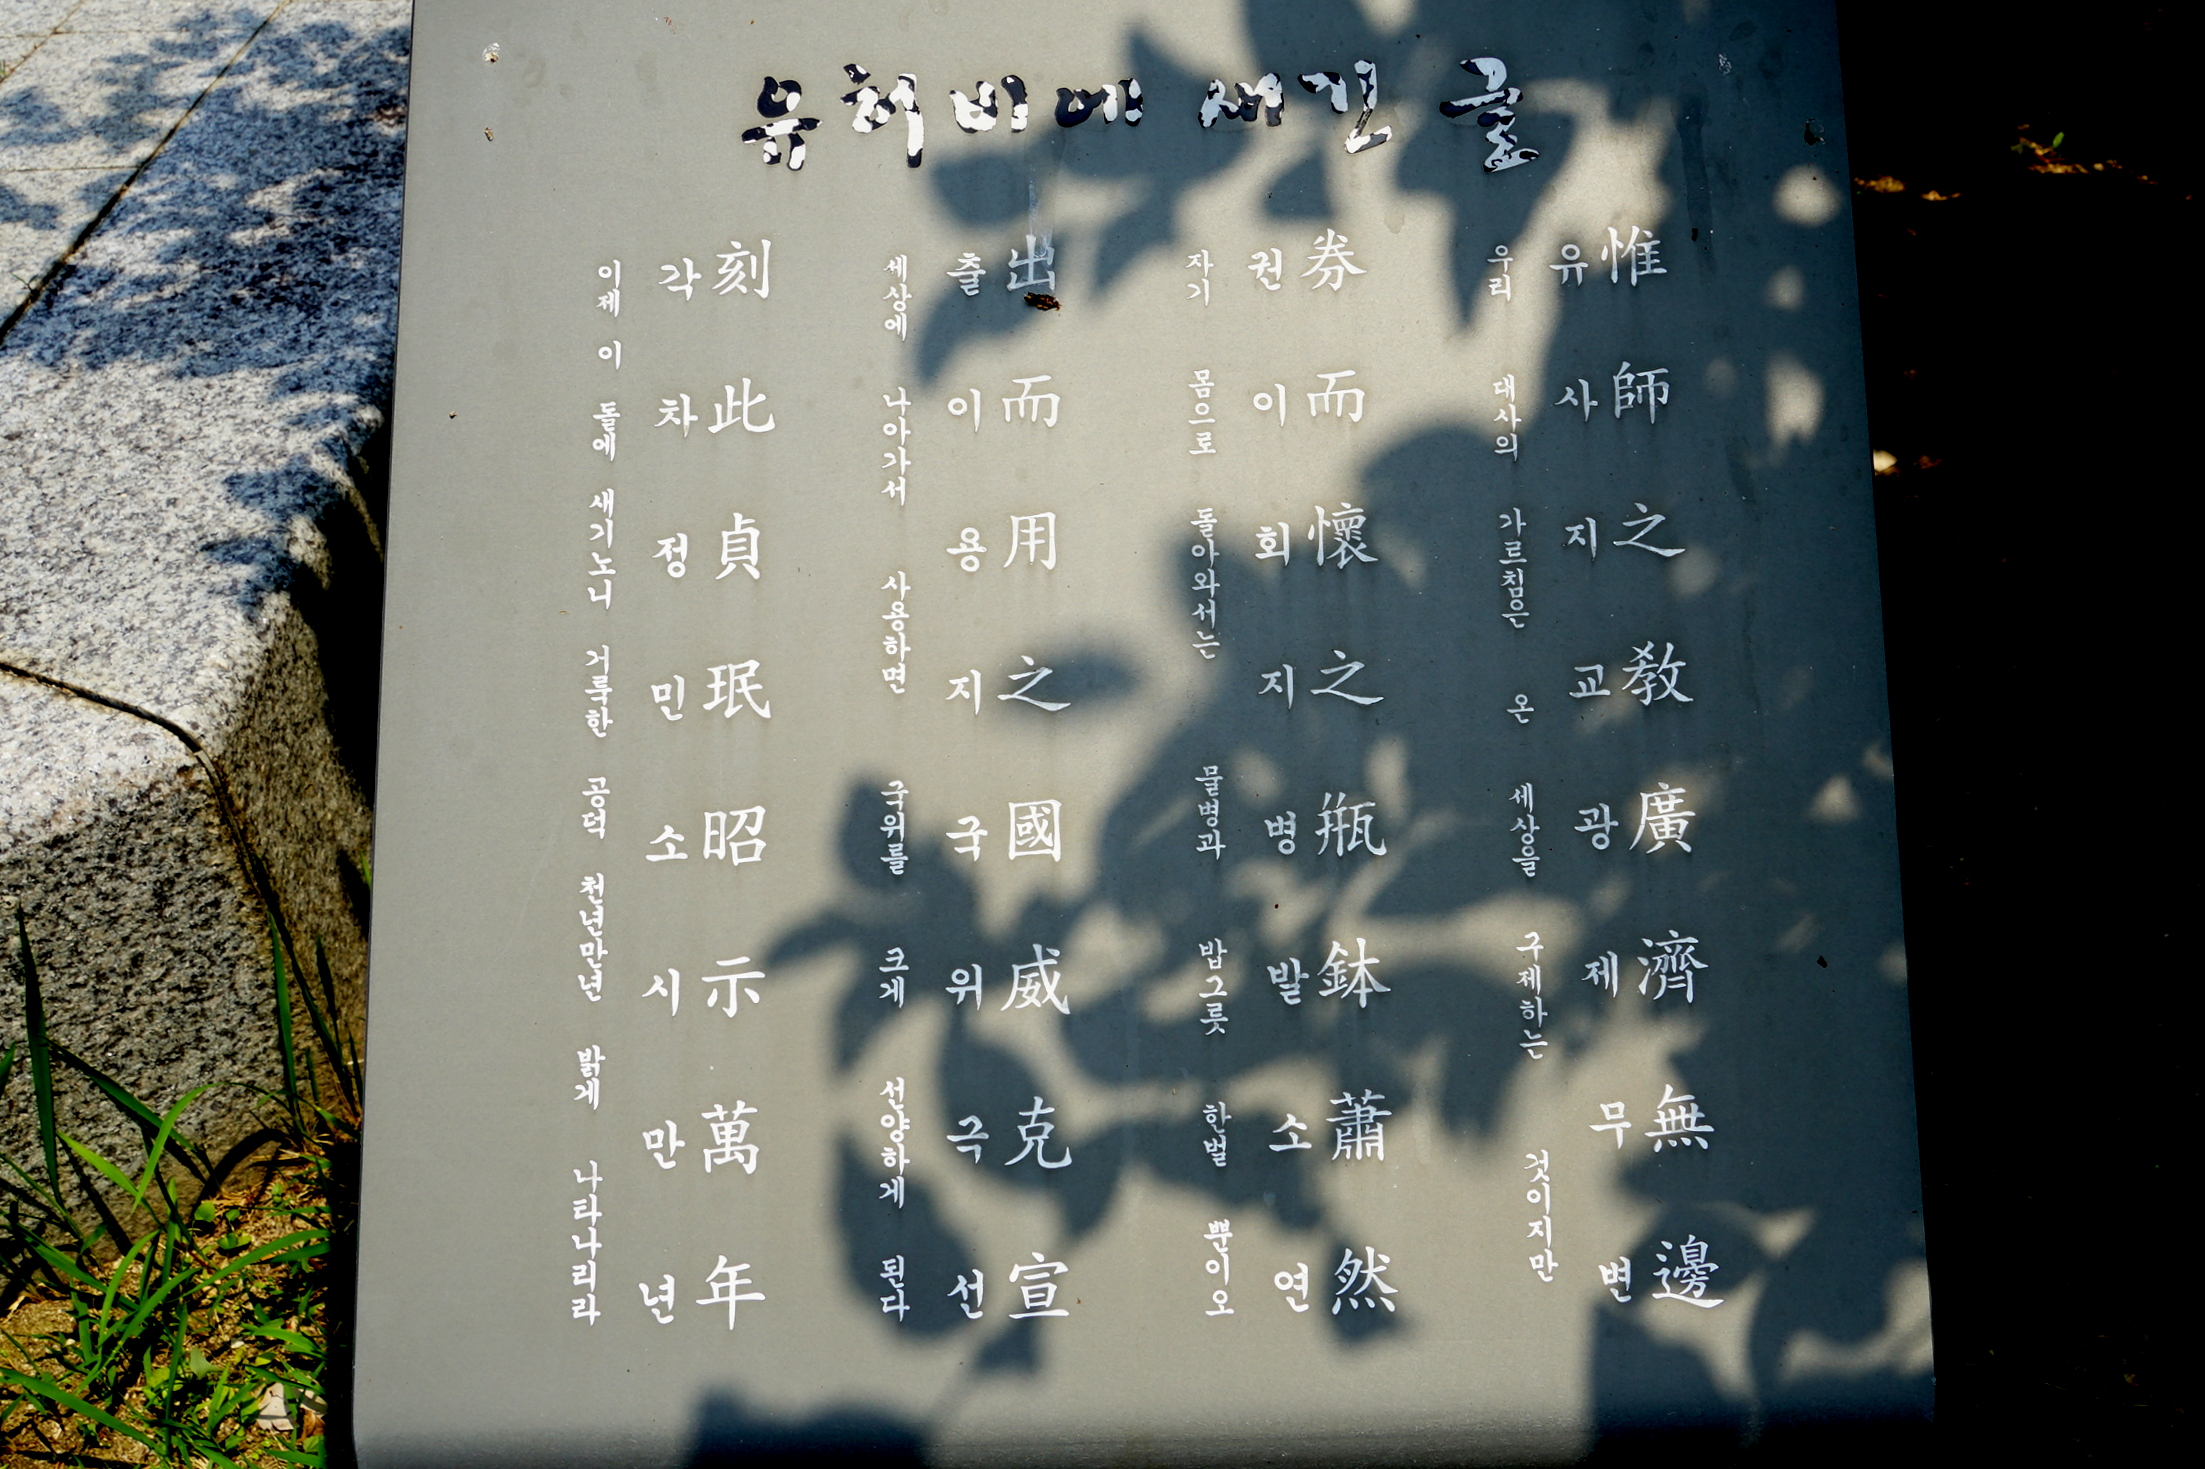 유허비에 새긴 글
惟師之敎廣濟無邊
유사지교광제무변
우리 대사의 가르침은 온 세상을 구제하는 것이지만
券而懷之甁鉢蕭然
권이회지병발소연
자기 몸으로 돌아와서는 물병과 밥그릇 한벌 뿐이오
出而用之國威克宣
출이용지국위극선
세상에 나아가서 사용하면 국위를 크게 선양하게 된다
刻此貞珉昭示萬年
각차정민소시만년
이제 이 돌에 새기노니 거룩한 공덕 천년만년 밝게 나타나리라